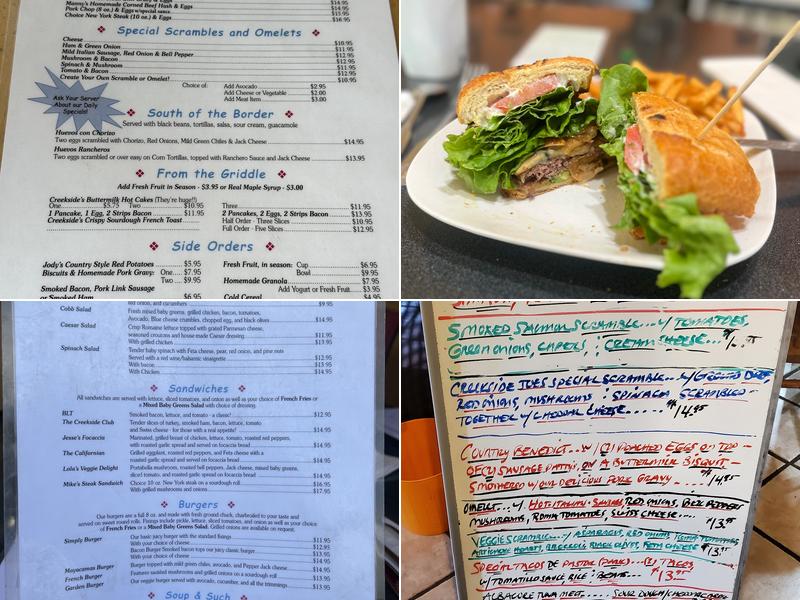 Manny's Homemade Corned Beef Hash & Eggs $14.95
Pork Chop (8 oz.) & Eggs w/special sauce $15.95
Choice New York Steak (10 oz.) & Eggs $16.95
Special Scrambles and Omelets
Cheese $10.95
Ham & Green Onion $11.95
Mild Italian Sausage, Red Onion & Bell Pepper $12.95
Mushroom & Bacon $12.95
Spinach & Mushroom $11.95
Tomato & Bacon $12.95
Create Your Own Scramble or Omelet! $10.95
Choice of: Add Avocado $2.95
Add Cheese or Vegetable $2.00
Add Meat Item $3.00
Ask Your Server
About our Daily
Specials!
South of the Border
Served with black beans, tortillas, salsa, sour cream, guacamole
Huevos con Chorizo
Two eggs scrambled with Chorizo, Red Onions, Mild Green Chiles & Jack Cheese $14.95
Huevos Rancheros
Two eggs scrambled or over easy on Corn Tortillas, topped with Ranchero Sauce and Jack Cheese $13.95
From the Griddle
Add Fresh Fruit in Season - $3.95 or Real Maple Syrup - $3.00
Creekside's Buttermilk Hot Cakes (They're huge!)
One $5.75 Two $10.95 Three $11.95
1 Pancake, 1 Egg, 2 Strips Bacon $11.95 2 Pancakes, 2 Eggs, 2 Strips Bacon $13.95
Creekside's Crispy Sourdough French Toast Half Order - Three Slices $10.95
Full Order - Five Slices $12.95
Side Orders
Jody's Country Style Red Potatoes $5.95 Fresh Fruit, in season: Cup $6.95
Biscuits & Homemade Pork Gravy: One $7.95 Bowl $9.95
Two $9.95 Homemade Granola $7.95
Smoked Bacon, Pork Link Sausage Add Yogurt or Fresh Fruit $3.95
or Smoked Ham $6.95 Cold Cereal $4.95
red onion, and cucumbers $9.95
Cobb Salad Fresh mixed baby greens, grilled chicken, bacon, tomatoes,
Avocado, Blue cheese crumbles, chopped egg, and black olives $14.95
Caesar Salad Crisp Romaine lettuce topped with grated Parmesan cheese,
seasoned croutons and house made Caesar dressing $11.95
With grilled chicken $13.95
Spinach Salad Tender baby spinach with Feta cheese, pear, red onion, and pine nuts
Served with a red wine/balsamic vinaigrette $12.95
With bacon $13.95
With Chicken $14.95
Sandwiches
All sandwiches are served with lettuce, sliced tomatoes, and onion as well as your choice of French Fries or
a Mixed Baby Greens Salad with choice of dressing.
BLT Smoked bacon, lettuce, and tomato - a classic! $12.95
The Creekside Club Tender slices of turkey, smoked ham, bacon, lettuce, tomato
and Swiss cheese - for those with a real appetite! $14.95
Jesse's Focaccia Marinated, grilled breast of chicken, lettuce, tomato, roasted red peppers,
with roasted garlic spread and served on focaccia bread $14.95
The Californian Grilled eggplant, roasted red peppers, and Feta cheese with a
roasted garlic spread and served on focaccia bread $14.95
Lola's Veggie Delight Portabella mushroom, roasted bell peppers, Jack cheese, mixed baby greens,
sliced tomato, and roasted garlic spread on focaccia bread $14.95
Mike's Steak Sandwich Choice 10 oz. New York steak on a sourdough roll $16.95
With grilled mushrooms and onions $17.95
Burgers
Our burgers are a full 8 oz. and made with fresh ground chuck, charbroiled to your taste and
served on sweet round rolls. Fixings include pickle, lettuce, sliced tomatoes, and onion as well as your choice
of French Fries or a Mixed Baby Greens Salad. Grilled onions are available on request.
Simply Burger Our basic juicy burger with the standard fixings $11.95
With your choice of cheese $12.95
Bacon Burger Smoked bacon tops our juicy classic burger $13.95
With your choice of cheese $14.95
Mayacamas Burger Burger topped with mild green chiles, avocado, and Pepper Jack cheese $14.95
French Burger Features sautéed mushrooms and grilled onions on a sourdough roll $13.95
Garden Burger Our veggie burger served with avocado, cucumber, and all the trimmings $13.95
Soup & Such
SMOKED SALMON SCRAMBLE... W/ TOMATOES,
GREEN ONIONS, CAPERS, & CREAM CHEESE...
CREEKSIDE JOES SPECIAL SCRAMBLE... W/ GROUND BEEF,
RED ONIONS, MUSHROOMS & SPINACH SCRAMBLED
TOGETHER W/ CHEDDAR CHEESE... $14.95
COUNTRY BENEDICT... W/ (2) POACHED EGGS ON TOP
OF (2) SAUSAGE PATTY, ON A BUTTERMILK BISCUIT
SMOTHERED W/ OUR DELICIOUS PORK GRAVY... $14.95
OMELET... W/ HOT ITALIAN SAUSAGE, RED ONIONS, BELL PEPPERS
MUSHROOMS, ROMA TOMATOES, SWISS CHEESE... $13.95
VEGGIE SCRAMBLE... W/ ASPARAGUS, RED ONIONS, ROMA TOMATOES,
ARTICHOKE HEARTS, BROCCOLI, BLACK OLIVES, FETA CHEESE $13.95
SPECIAL TACOS DE PASTOR (PORK)... (3) TACOS
W/ TOMATILLO SAUCE RICE & BEANS... $13.95
ALBACORE TUNA MELT... SOUR DOUGH/CHEDDAR